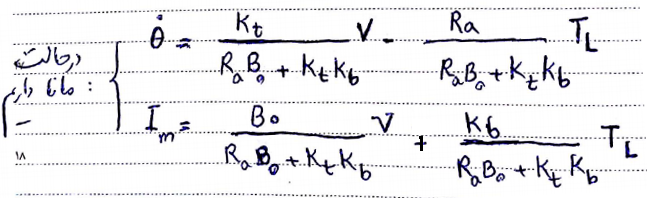 در حالت
ماندگار :
θ̇ = Kt / (Ra B0 + Kt Kb) V - Ra / (Ra B0 + Kt Kb) TL
Im = B0 / (Ra B0 + Kt Kb) V + Kb / (Ra B0 + Kt Kb) TL